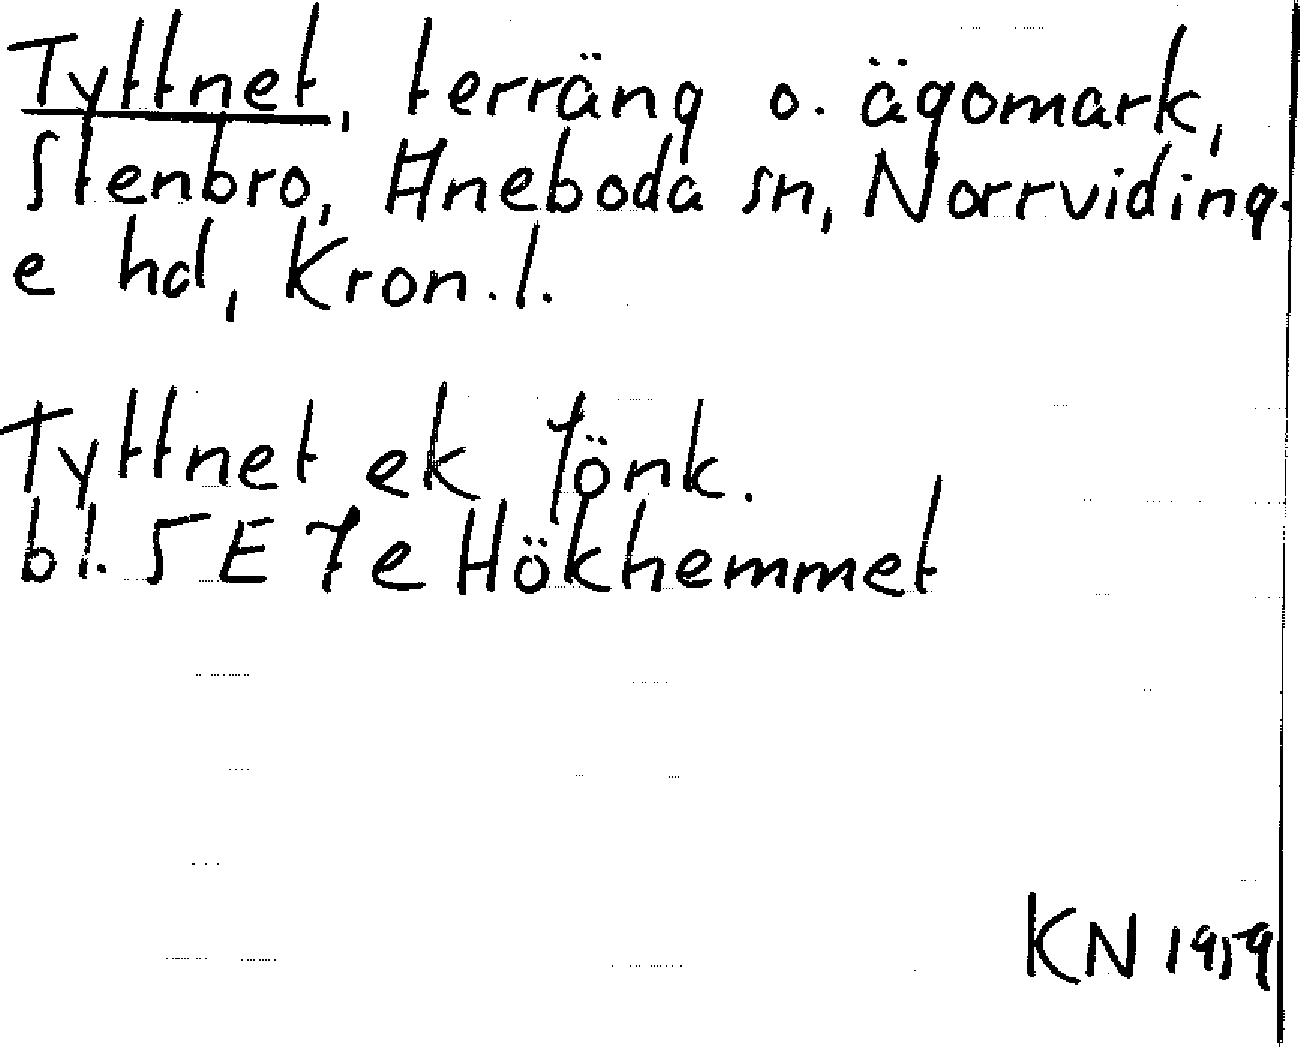 Tyttnet, terräng o. ägomark,
Stenbro, Aneboda sn, Norrviding-
e hd, Kron.l.
Tyttnet ek Jönk.
bl. 5 E 7 e Hökhemmet
KN 1959